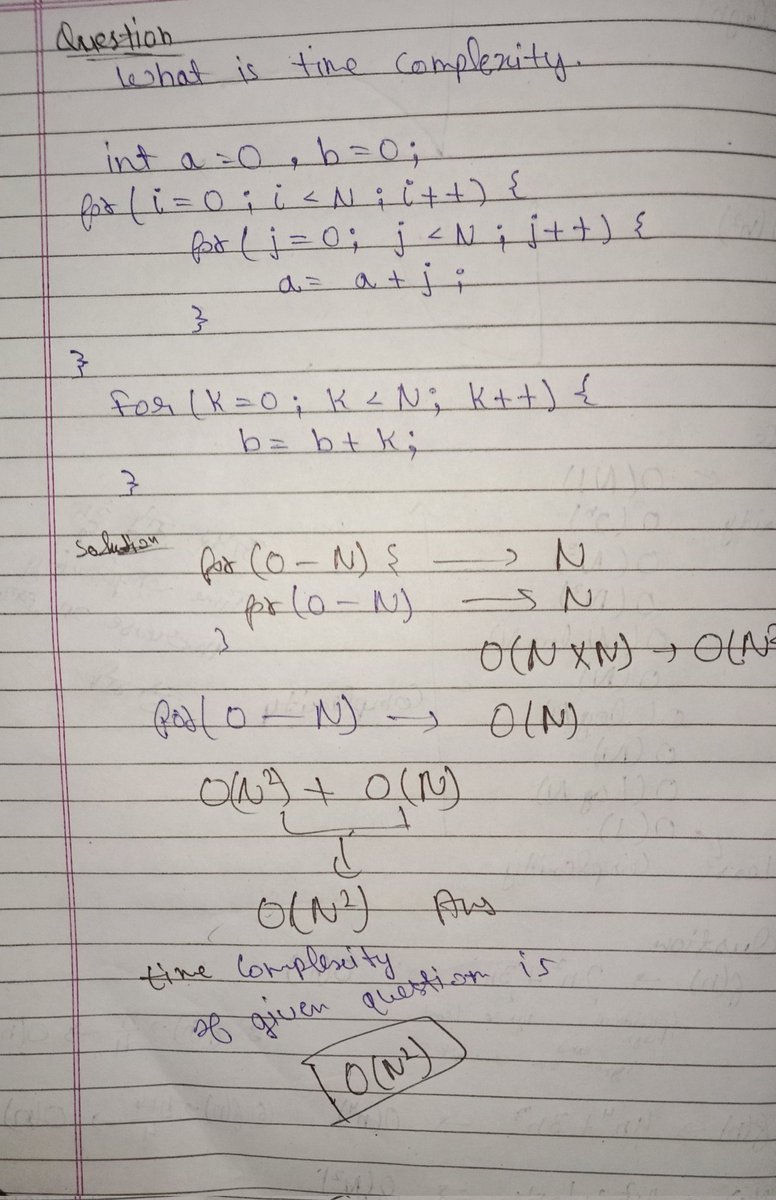 Question
What is time complexity.
int a = 0 , b = 0 ;
for ( i = 0 ; i < N ; i + + ) {
for ( j = 0 ; j < N ; j + + ) {
a = a + j ;
}
}
for ( K = 0 ; K < N ; K + + ) {
b = b + K ;
}
Solution
for ( 0 – N ) { → N
for ( 0 – N ) → N
}
O(N X N) → O(N²
for ( 0 – N ) → O(N)
O(N²) + O(N)
↓
O(N²) Ans
time complexity
of given question is
O(N²)